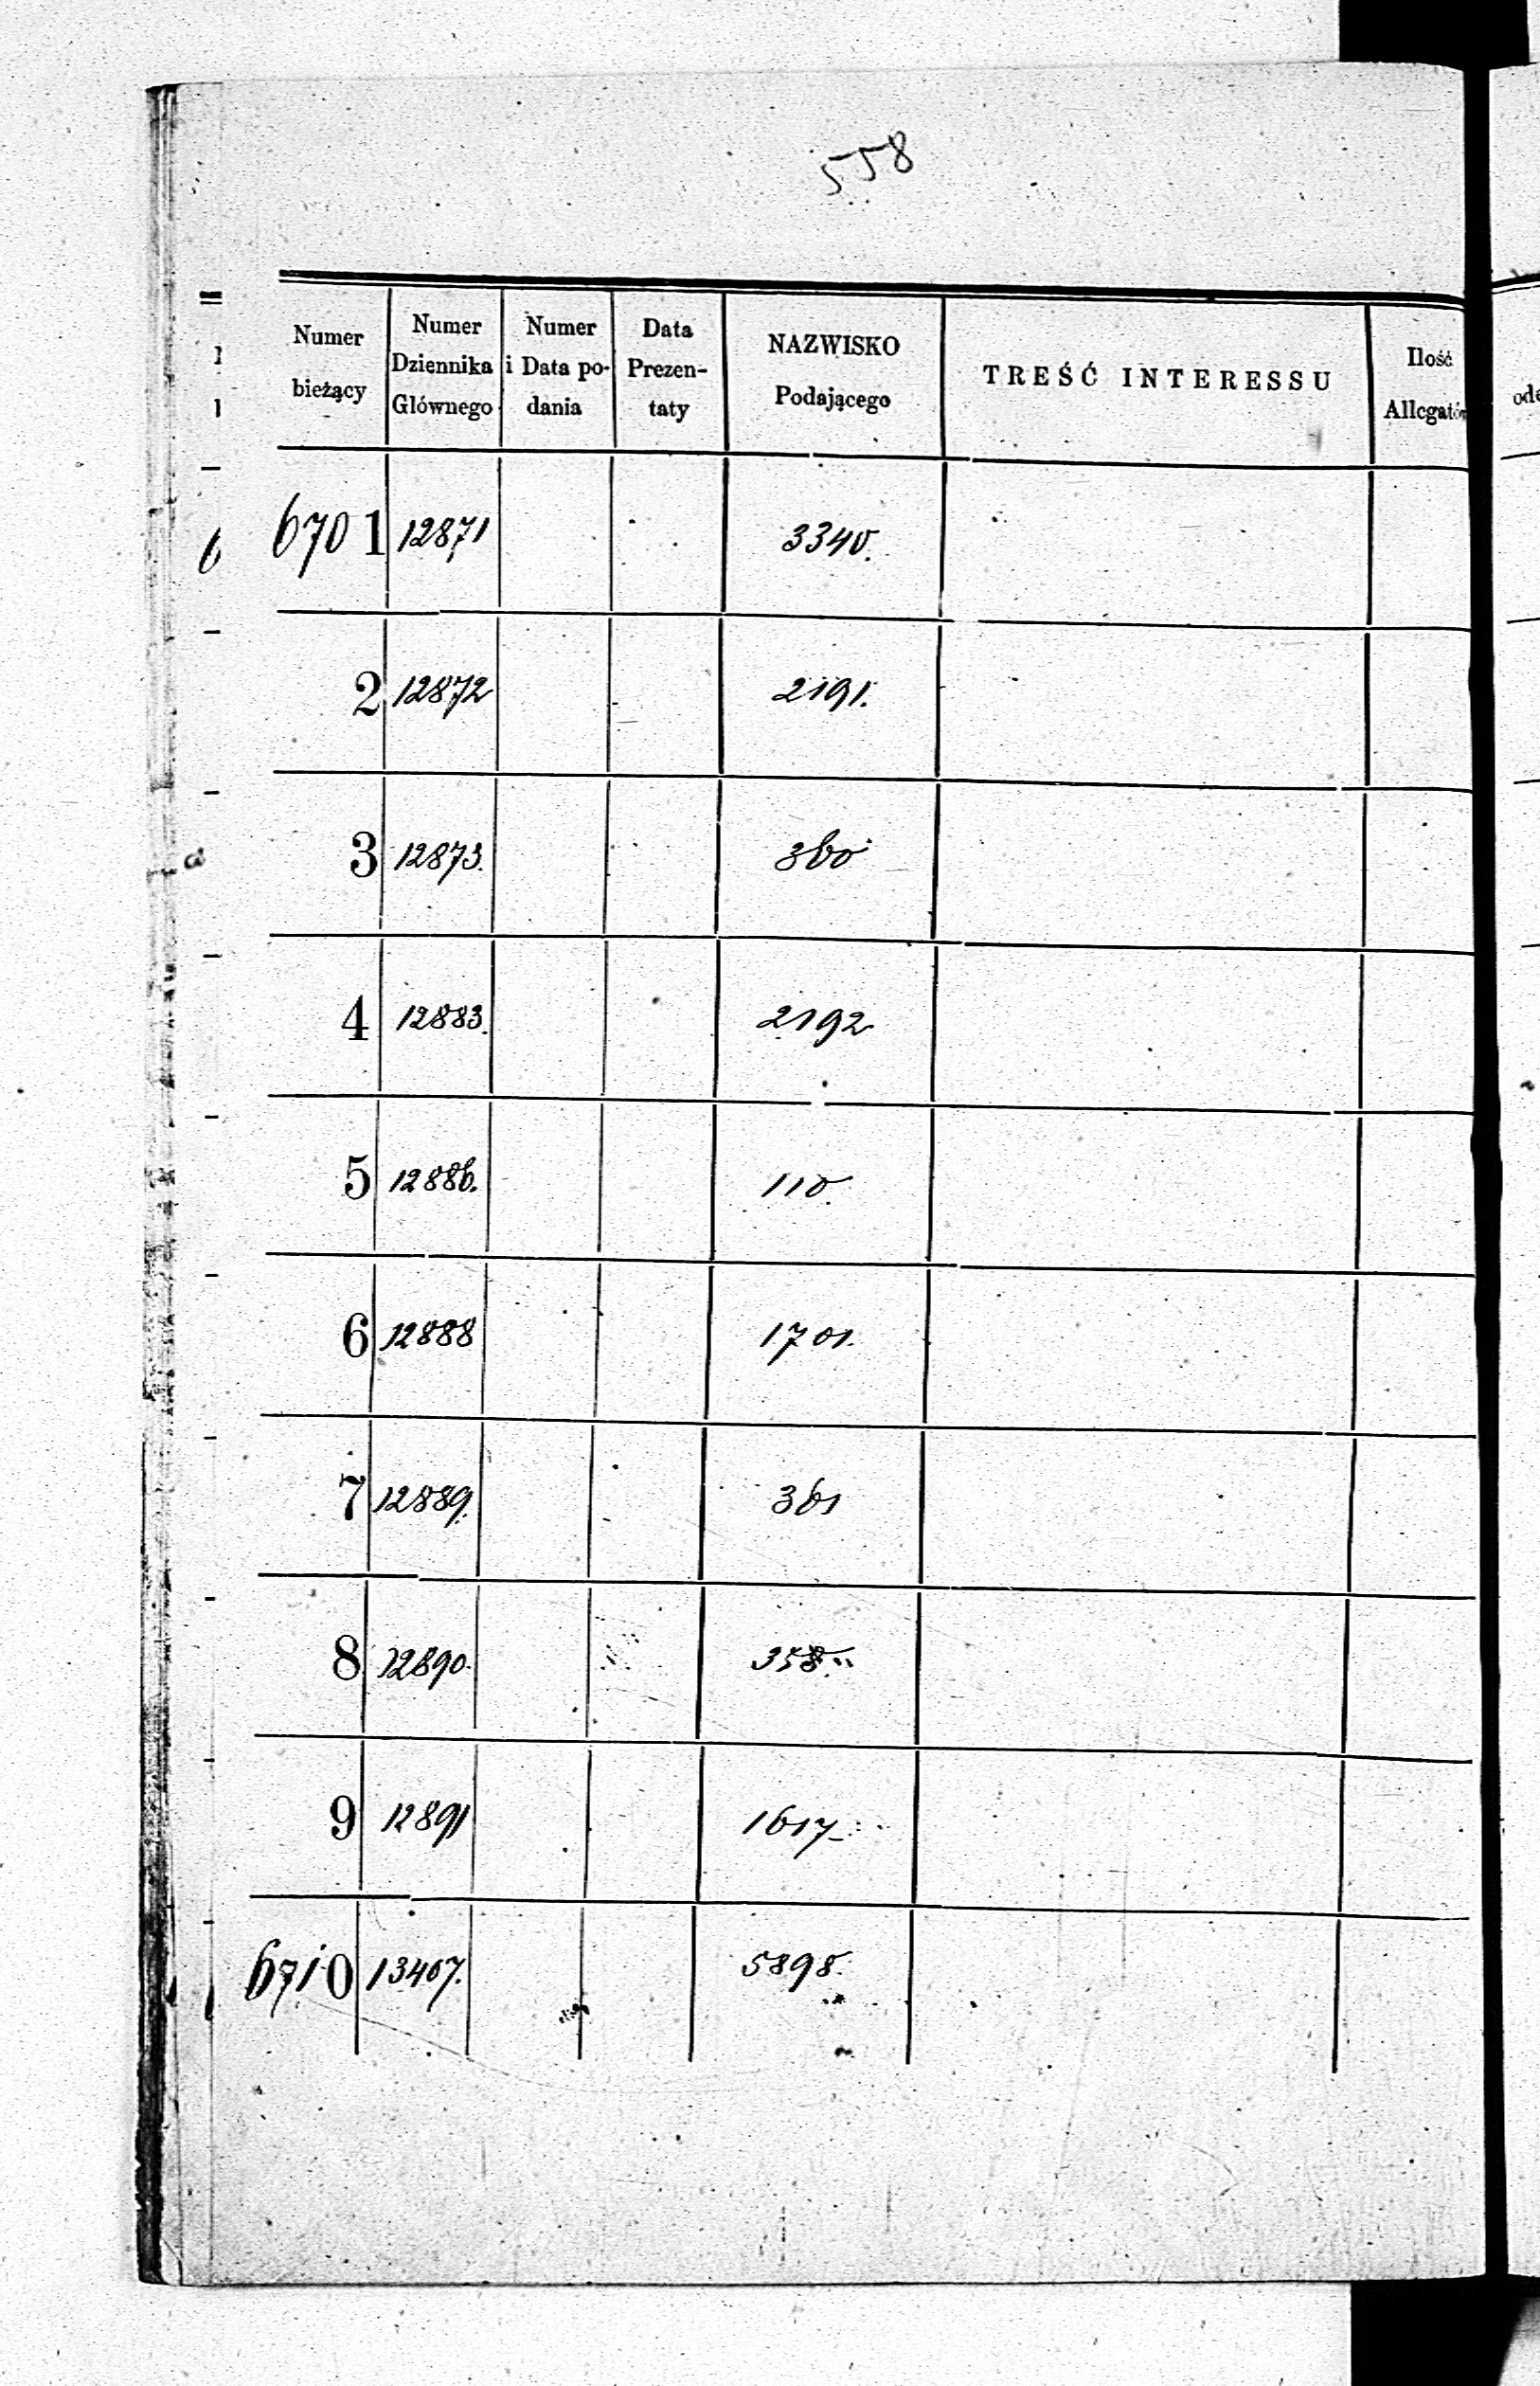 558
Numer bieżący | Numer Dziennika Głównego | Numer i Data podania | Data Prezentaty | NAZWISKO Podającego | TREŚĆ INTERESSU | Ilość Allegatów
6701 12871 3340.
2 12872 2191.
3 12873. 360
4 12883. 2192
5 12886. 110.
6 12888 1701.
7 12889. 361
8 12890. 358.
9 12891 1617
6710 13407. 5898.